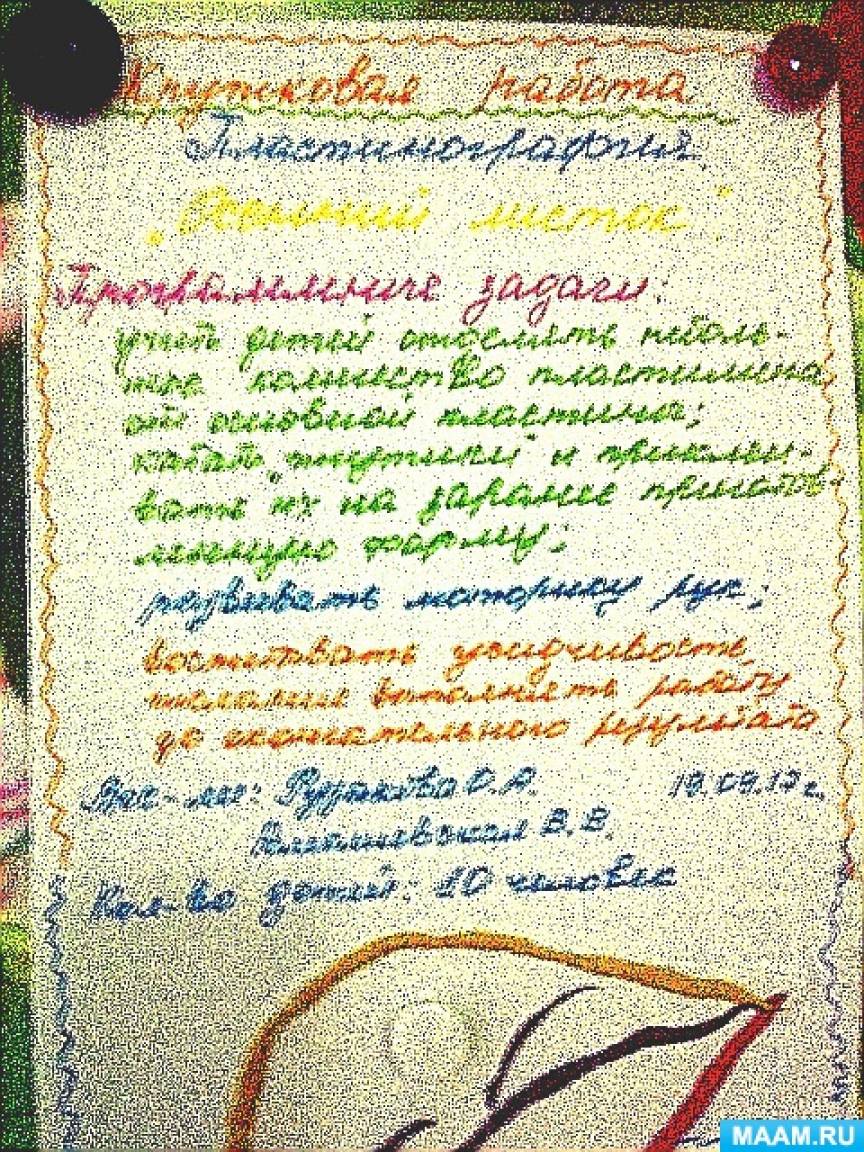 Кружковая работа
Пластинография
"Осенний листок".
Программные задачи:
учить детей отделять неболь-
шое количество пластилина
от основной пластины;
катать "жгутики" и приклеи-
вать их на заранее приготов-
ленную форму;
развивать моторику рук;
воспитывать усидчивость,
желание выполнять работу
до окончательного результата
Вос-ли: О.А. 19.09.17г.
В.В.
Кол-во детей: 10 человек
MAAM.RU